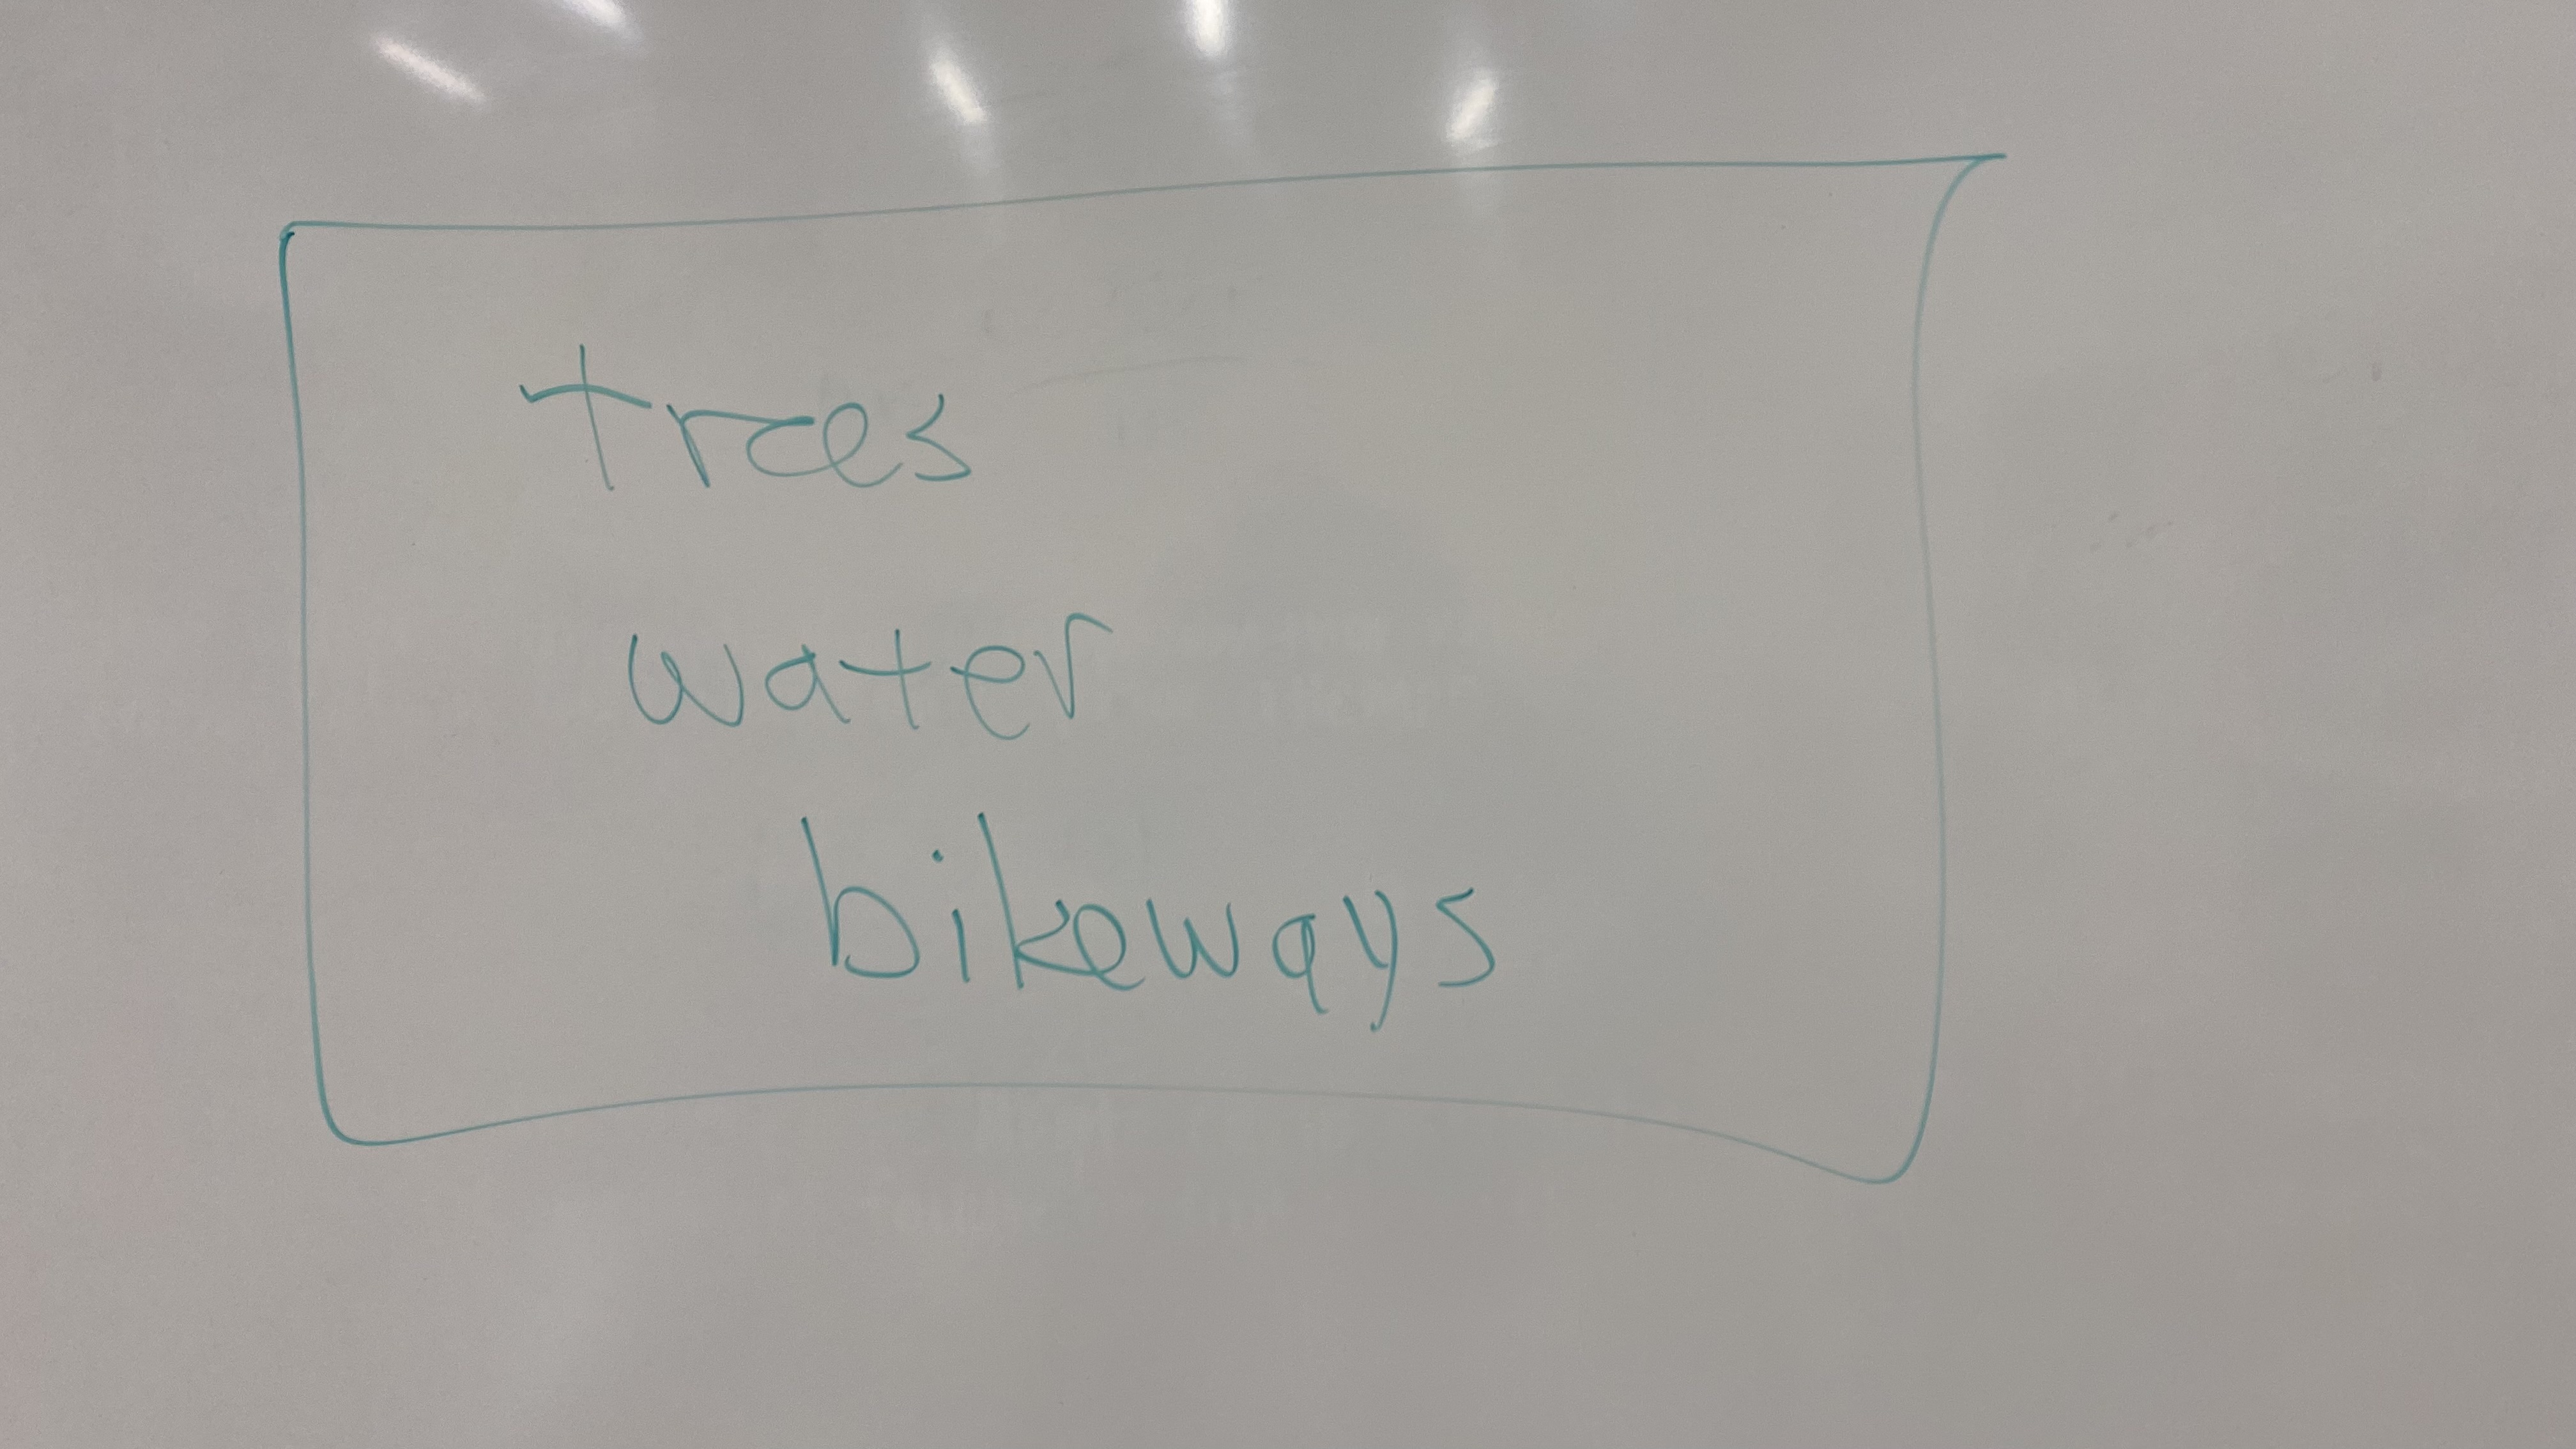 trees
water
bikeways